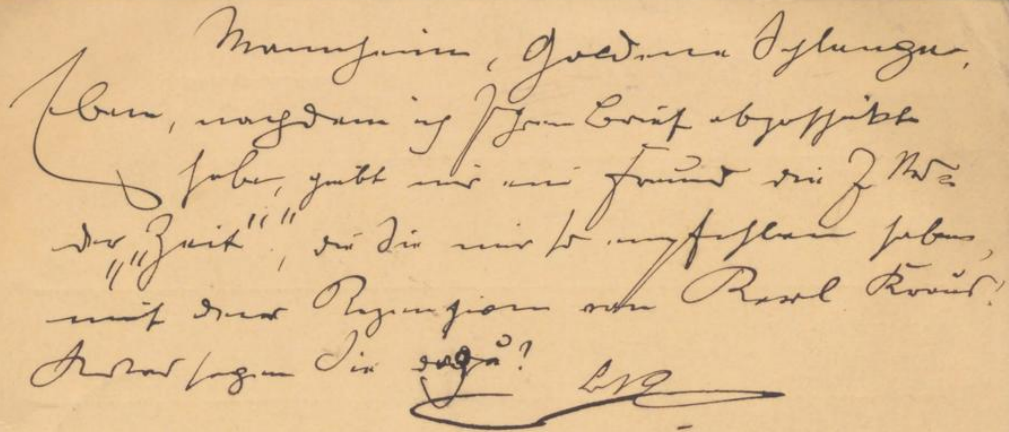 Mannheim, Goldene Schlange,
Eben, nachdem ich Ihren Brief abgeschickt
habe, gibt mir ein Freund die
der „„Zeit““, die Sie mir so empfohlen haben,
mit der Rezension von Karl Kraus!
Was sagen Sie dazu?